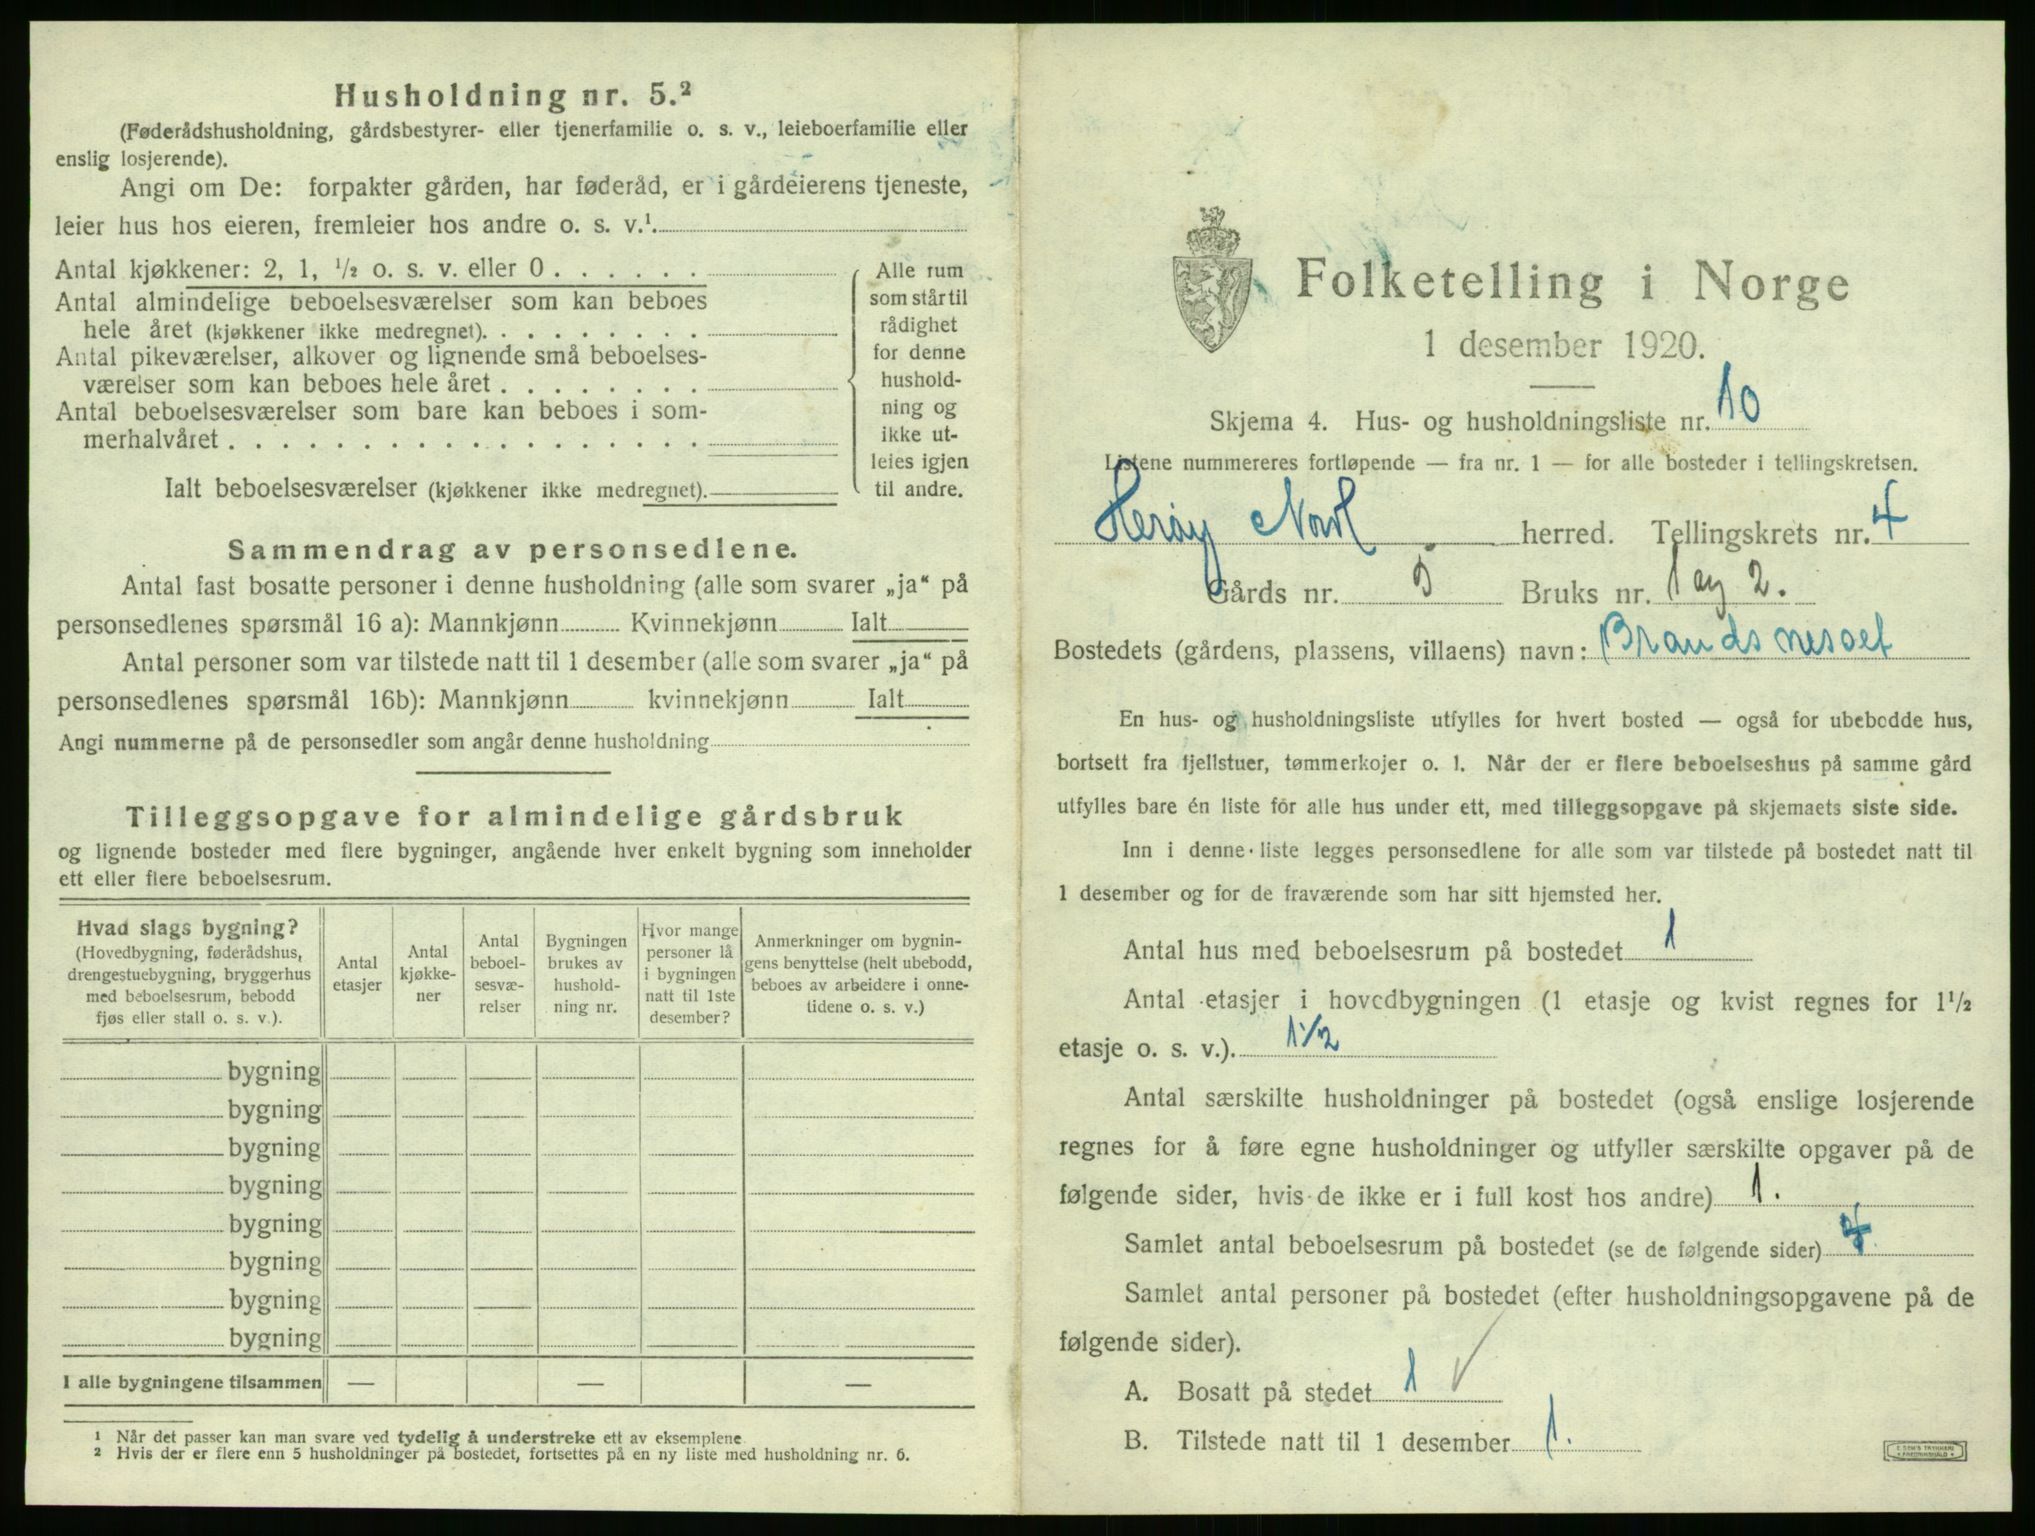 Husholdning nr. 5.²
(Føderådshusholdning, gårdsbestyrer- eller tjenerfamilie o. s. v., leieboerfamilie eller
enslig losjerende).
Angi om De: forpakter gården, har føderåd, er i gårdeierens tjeneste,
leier hus hos eieren, fremleier hos andre o. s. v.¹.
Antal kjøkkener: 2, 1, ½ o. s. v. eller 0 . . . . . .
Antal almindelige beboelsesværelser som kan beboes
hele året (kjøkkener ikke medregnet). . . . . . . . .
Antal pikeværelser, alkover og lignende små beboelses-
værelser som kan beboes hele året . . . . . . . .
Antal beboelsesværelser som bare kan beboes i som-
merhalvåret . . . . . . . . . . . . . . . . . .
Ialt beboelsesværelser (kjøkkener ikke medregnet).
Alle rum
som står til
rådighet
for denne
hushold-
ning og
ikke ut-
leies igjen
til andre.
Sammendrag av personsedlene.
Antal fast bosatte personer i denne husholdning (alle som svarer „ja“ på
personsedlenes spørsmål 16 a): Mannkjønn Kvinnekjønn Ialt
Antal personer som var tilstede natt til 1 desember (alle som svarer „ja“ på
personsedlenes spørsmål 16b): Mannkjønn kvinnekjønn Ialt
Angi nummerne på de personsedler som angår denne husholdning
Tilleggsopgave for almindelige gårdsbruk
og lignende bosteder med flere bygninger, angående hver enkelt bygning som inneholder
ett eller flere beboelsesrum.
Hvad slags bygning?
(Hovedbygning, føderådshus,
drengestuebygning, bryggerhus
med beboelsesrum, bebodd
fjøs eller stall o. s. v.).
Antal
etasjer
Antal
kjøkke-
ner
Antal
beboel-
sesvæ-
relser
Bygningen
brukes av
hushold-
ning nr.
Hvor mange
personer lå
i bygningen
natt til 1ste
desember?
Anmerkninger om bygnin-
gens benyttelse (helt ubebodd,
beboes av arbeidere i onne-
tidene o. s. v.)
bygning
bygning
bygning
bygning
bygning
bygning
bygning
bygning
I alle bygningene tilsammen — — —
¹ Når det passer kan man svare ved tydelig å understreke ett av eksemplene
² Hvis der er flere enn 5 husholdninger på bostedet, fortsettes på en ny liste med husholdning nr. 6.
Folketelling i Norge
1 desember 1920.
Skjema 4. Hus- og husholdningsliste nr. 10
Listene nummereres fortløpende — fra nr. 1 — for alle bosteder i tellingskretsen.
Herøy Nordl herred. Tellingskrets nr. 4
Gårds nr. 5 Bruks nr. 1 og 2.
Bostedets (gårdens, plassens, villaens) navn: Brandsnesset
En hus- og husholdningsliste utfylles for hvert bosted — også for ubebodde hus,
bortsett fra fjellstuer, tømmerkojer o. l. Når der er flere beboelseshus på samme gård
utfylles bare én liste for alle hus under ett, med tilleggsopgave på skjemaets siste side.
Inn i denne liste legges personsedlene for alle som var tilstede på bostedet natt til
1 desember og for de fraværende som har sitt hjemsted her.
Antal hus med beboelsesrum på bostedet 1
Antal etasjer i hovedbygningen (1 etasje og kvist regnes for 1½
etasje o. s. v.). 1½
Antal særskilte husholdninger på bostedet (også enslige losjerende
regnes for å føre egne husholdninger og utfyller særskilte opgaver på de
følgende sider, hvis de ikke er i full kost hos andre) 1.
Samlet antal beboelsesrum på bostedet (se de følgende sider)
Samlet antal personer på bostedet (efter husholdningsopgavene på de
følgende sider).
A. Bosatt på stedet 1
B. Tilstede natt til 1 desember 1.